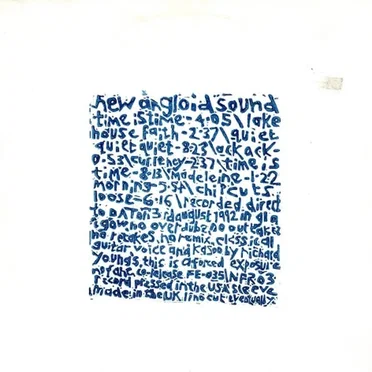 new angloid sound
time is time-4.05\lake
house faith-2.37\quiet
quiet quiet-8.23\ackack
0.53\currency-2.37\time is
time-8.13\madeleine-1.22
morning-5.54\chipcuts
loose-6.15\recorded direct
to DAT on 3rd august 1992 in gla
sgow, no overdubs, no outtakes
no retakes, no remix, classical
guitar voice and kazoo by Richard
Youngs, this is a forced exposure
nofans co-release FE-035\NFR03
record pressed in the USA sleeve
made in the UK lino cut eventually.